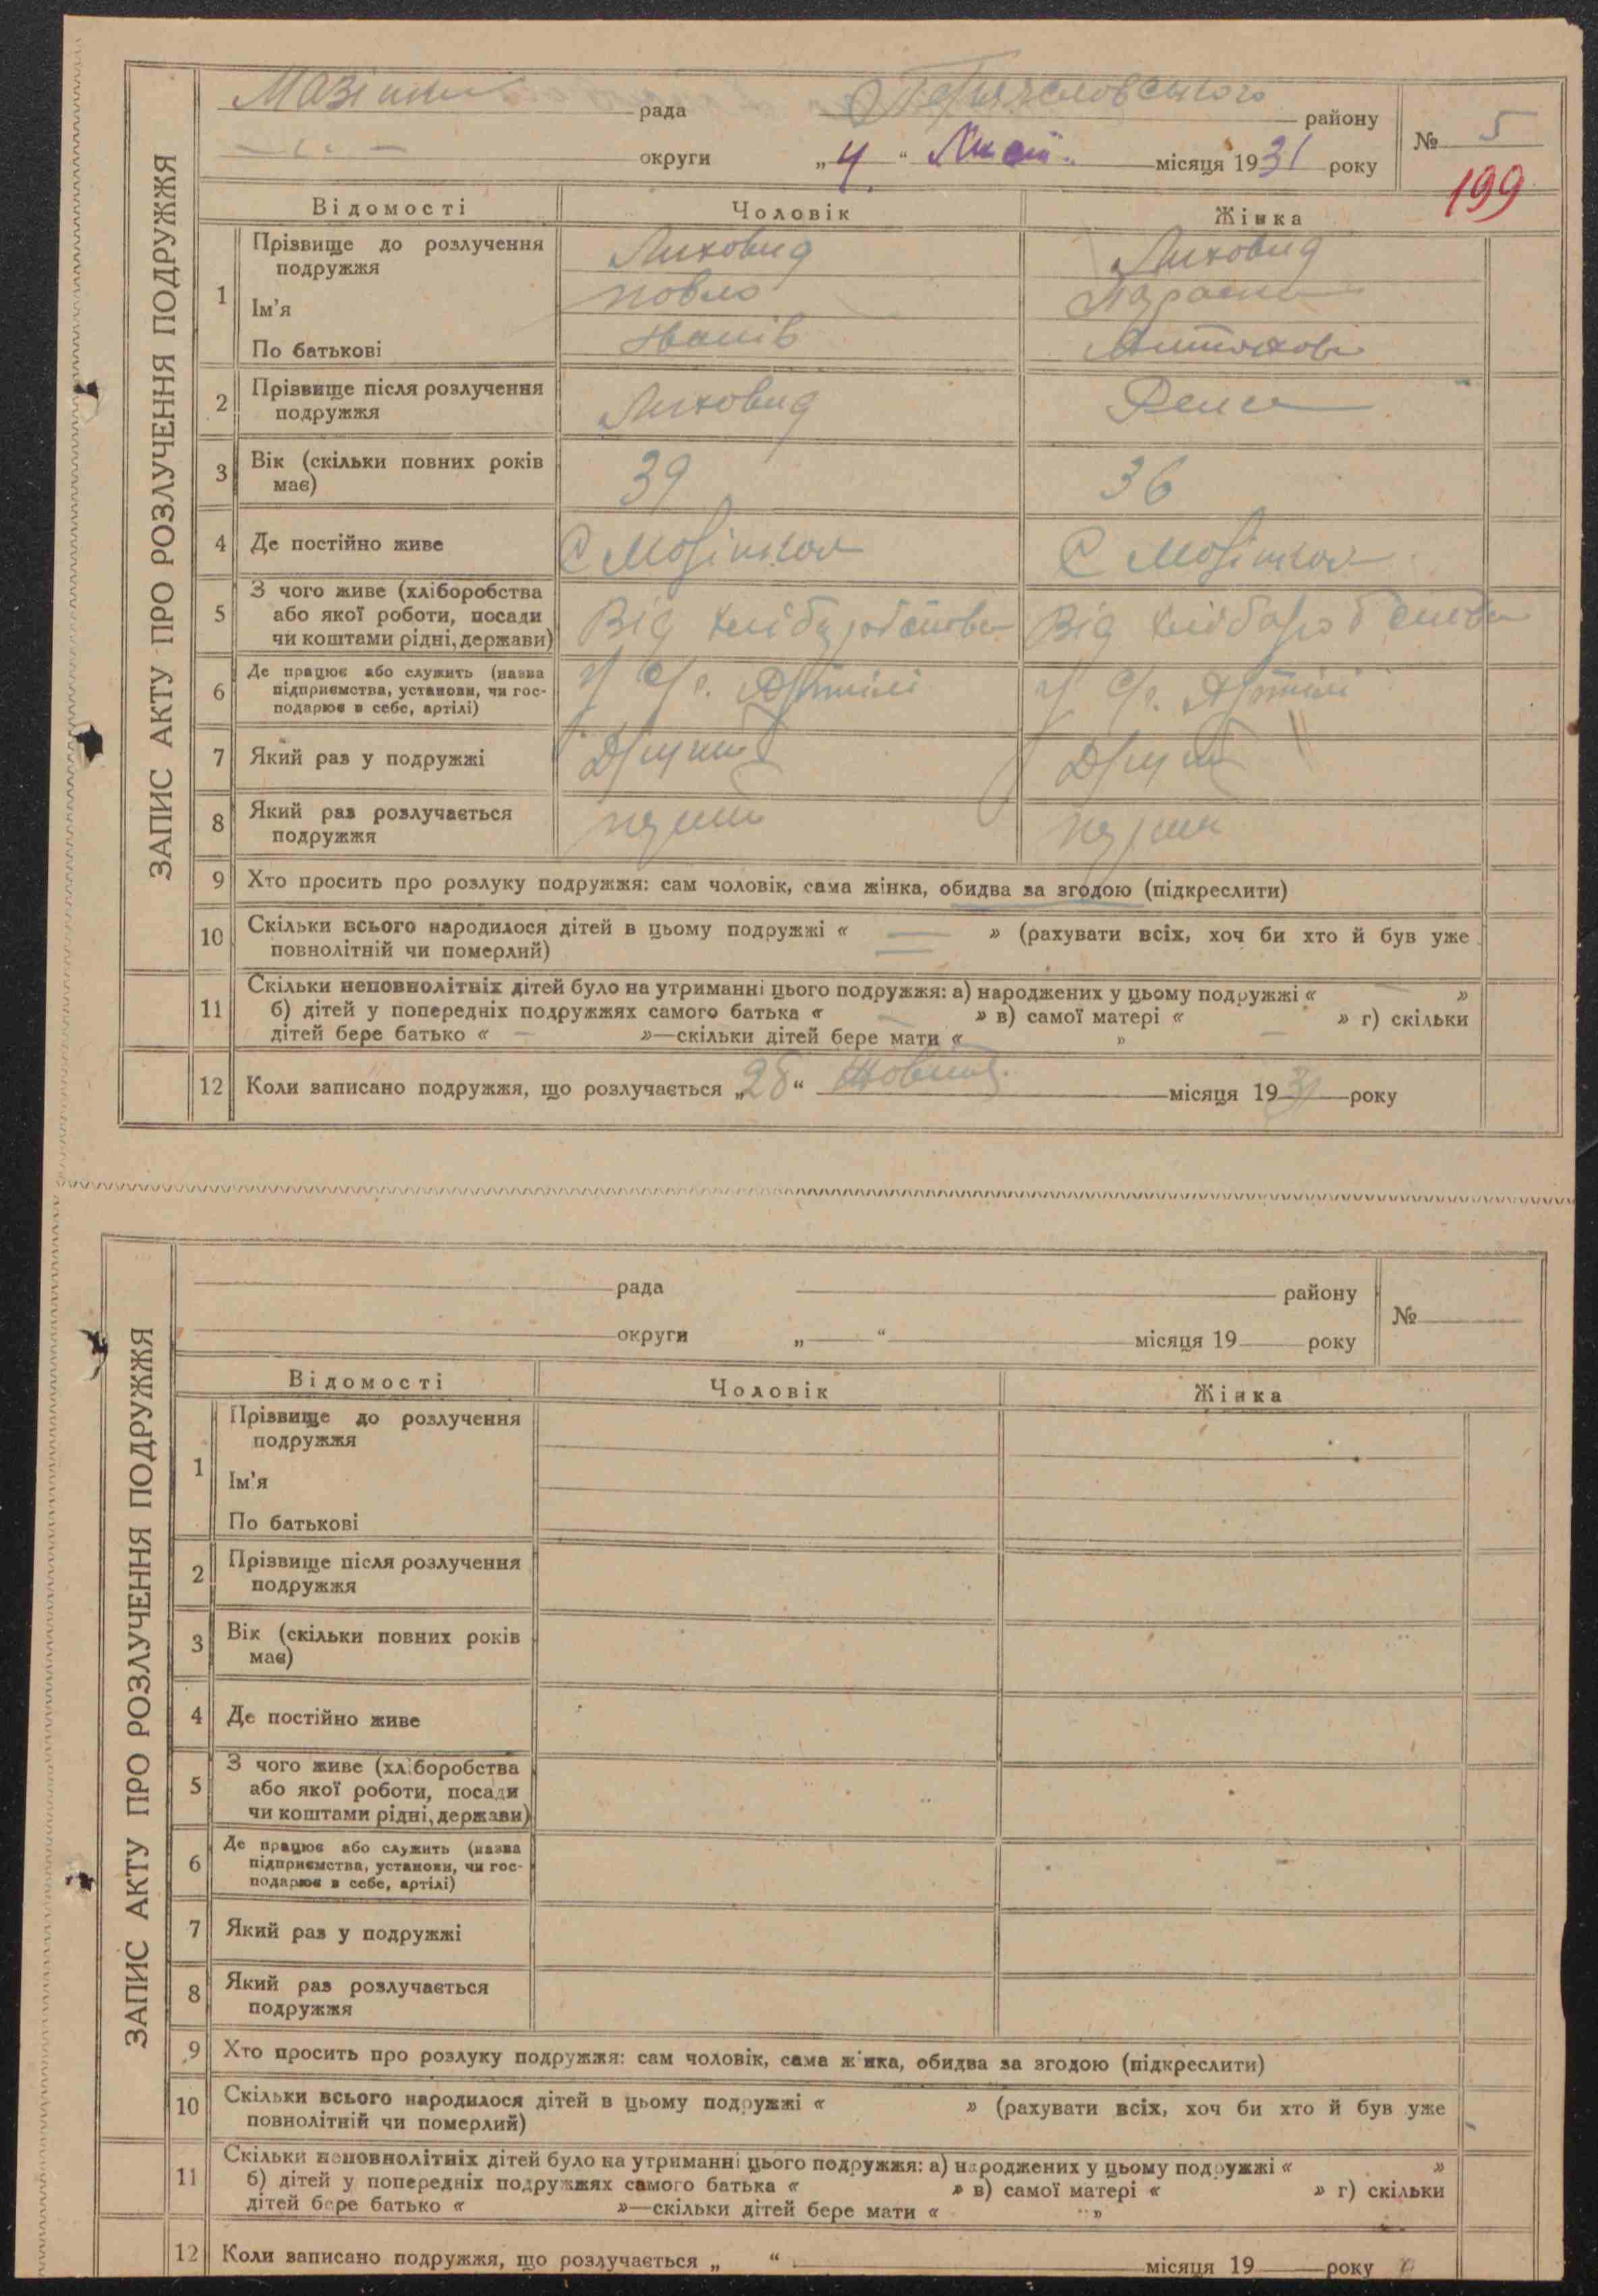 ЗАПИС АКТУ ПРО РОЗЛУЧЕННЯ ПОДРУЖЖЯ
рада району № 5
округи „4“ місяця 1931 року
199
Відомості Чоловік Жінка
1 Прізвище до розлучення подружжя Лиховид Лиховид
Ім'я Повло
По батькові Іванів
2 Прізвище після розлучення подружжя Лиховид
3 Вік (скільки повних років має) 39 36
4 Де постійно живе С Мозінках С Мозінках
5 З чого живе (хліборобства або якої роботи, посади чи коштами рідні, держави) Від Від
6 Де працює або служить (назва підприємства, установи, чи господарює в себе, артілі) У С/г. Артілі У С/г. Артілі
7 Який раз у подружжі
8 Який раз розлучається подружжя
9 Хто просить про розлуку подружжя: сам чоловік, сама жінка, обидва за згодою (підкреслити)
10 Скільки всього народилося дітей в цьому подружжі « — » (рахувати всіх, хоч би хто й був уже
повнолітній чи померлий)
11 Скільки неповнолітніх дітей було на утриманні цього подружжя: а) народжених у цьому подружжі « — »
б) дітей у попередніх подружжях самого батька « — » в) самої матері « — » г) скільки
дітей бере батько « — »—скільки дітей бере мати « — »
12 Коли записано подружжя, що розлучається „ “ місяця 19 року
ЗАПИС АКТУ ПРО РОЗЛУЧЕННЯ ПОДРУЖЖЯ
рада району №
округи „ “ місяця 19 року
Відомості Чоловік Жінка
1 Прізвище до розлучення подружжя
Ім'я
По батькові
2 Прізвище після розлучення подружжя
3 Вік (скільки повних років має)
4 Де постійно живе
5 З чого живе (хліборобства або якої роботи, посади чи коштами рідні, держави)
6 Де працює або служить (назва підприємства, установи, чи господарює в себе, артілі)
7 Який раз у подружжі
8 Який раз розлучається подружжя
9 Хто просить про розлуку подружжя: сам чоловік, сама жінка, обидва за згодою (підкреслити)
10 Скільки всього народилося дітей в цьому подружжі « » (рахувати всіх, хоч би хто й був уже
повнолітній чи померлий)
11 Скільки неповнолітніх дітей було на утриманні цього подружжя: а) народжених у цьому подружжі « »
б) дітей у попередніх подружжях самого батька « » в) самої матері « » г) скільки
дітей бере батько « »—скільки дітей бере мати « »
12 Коли записано подружжя, що розлучається „ “ місяця 19 року